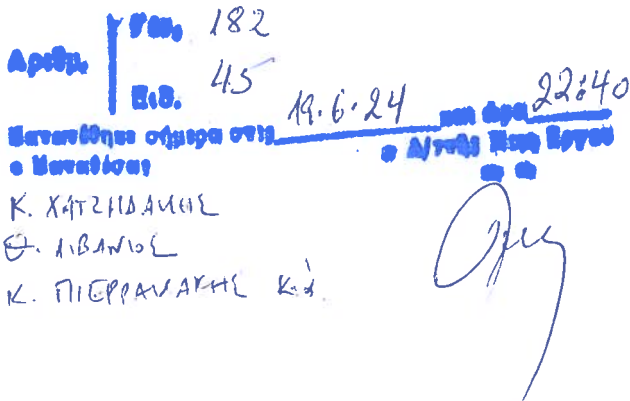 Αριθμ. Γεν. 182
Ειδ. 45
Κατατέθηκε σήμερα στις 19.6.24 και ώρα 22:40
ο Καταθέσας ο Δ/ντής Κοιν. Έργου
Κ. ΧΑΤΖΗΔΑΚΗΣ
Θ. ΛΙΒΑΝΙΟΣ
Κ. ΠΙΕΡΡΑΚΑΚΗΣ κ.ά.